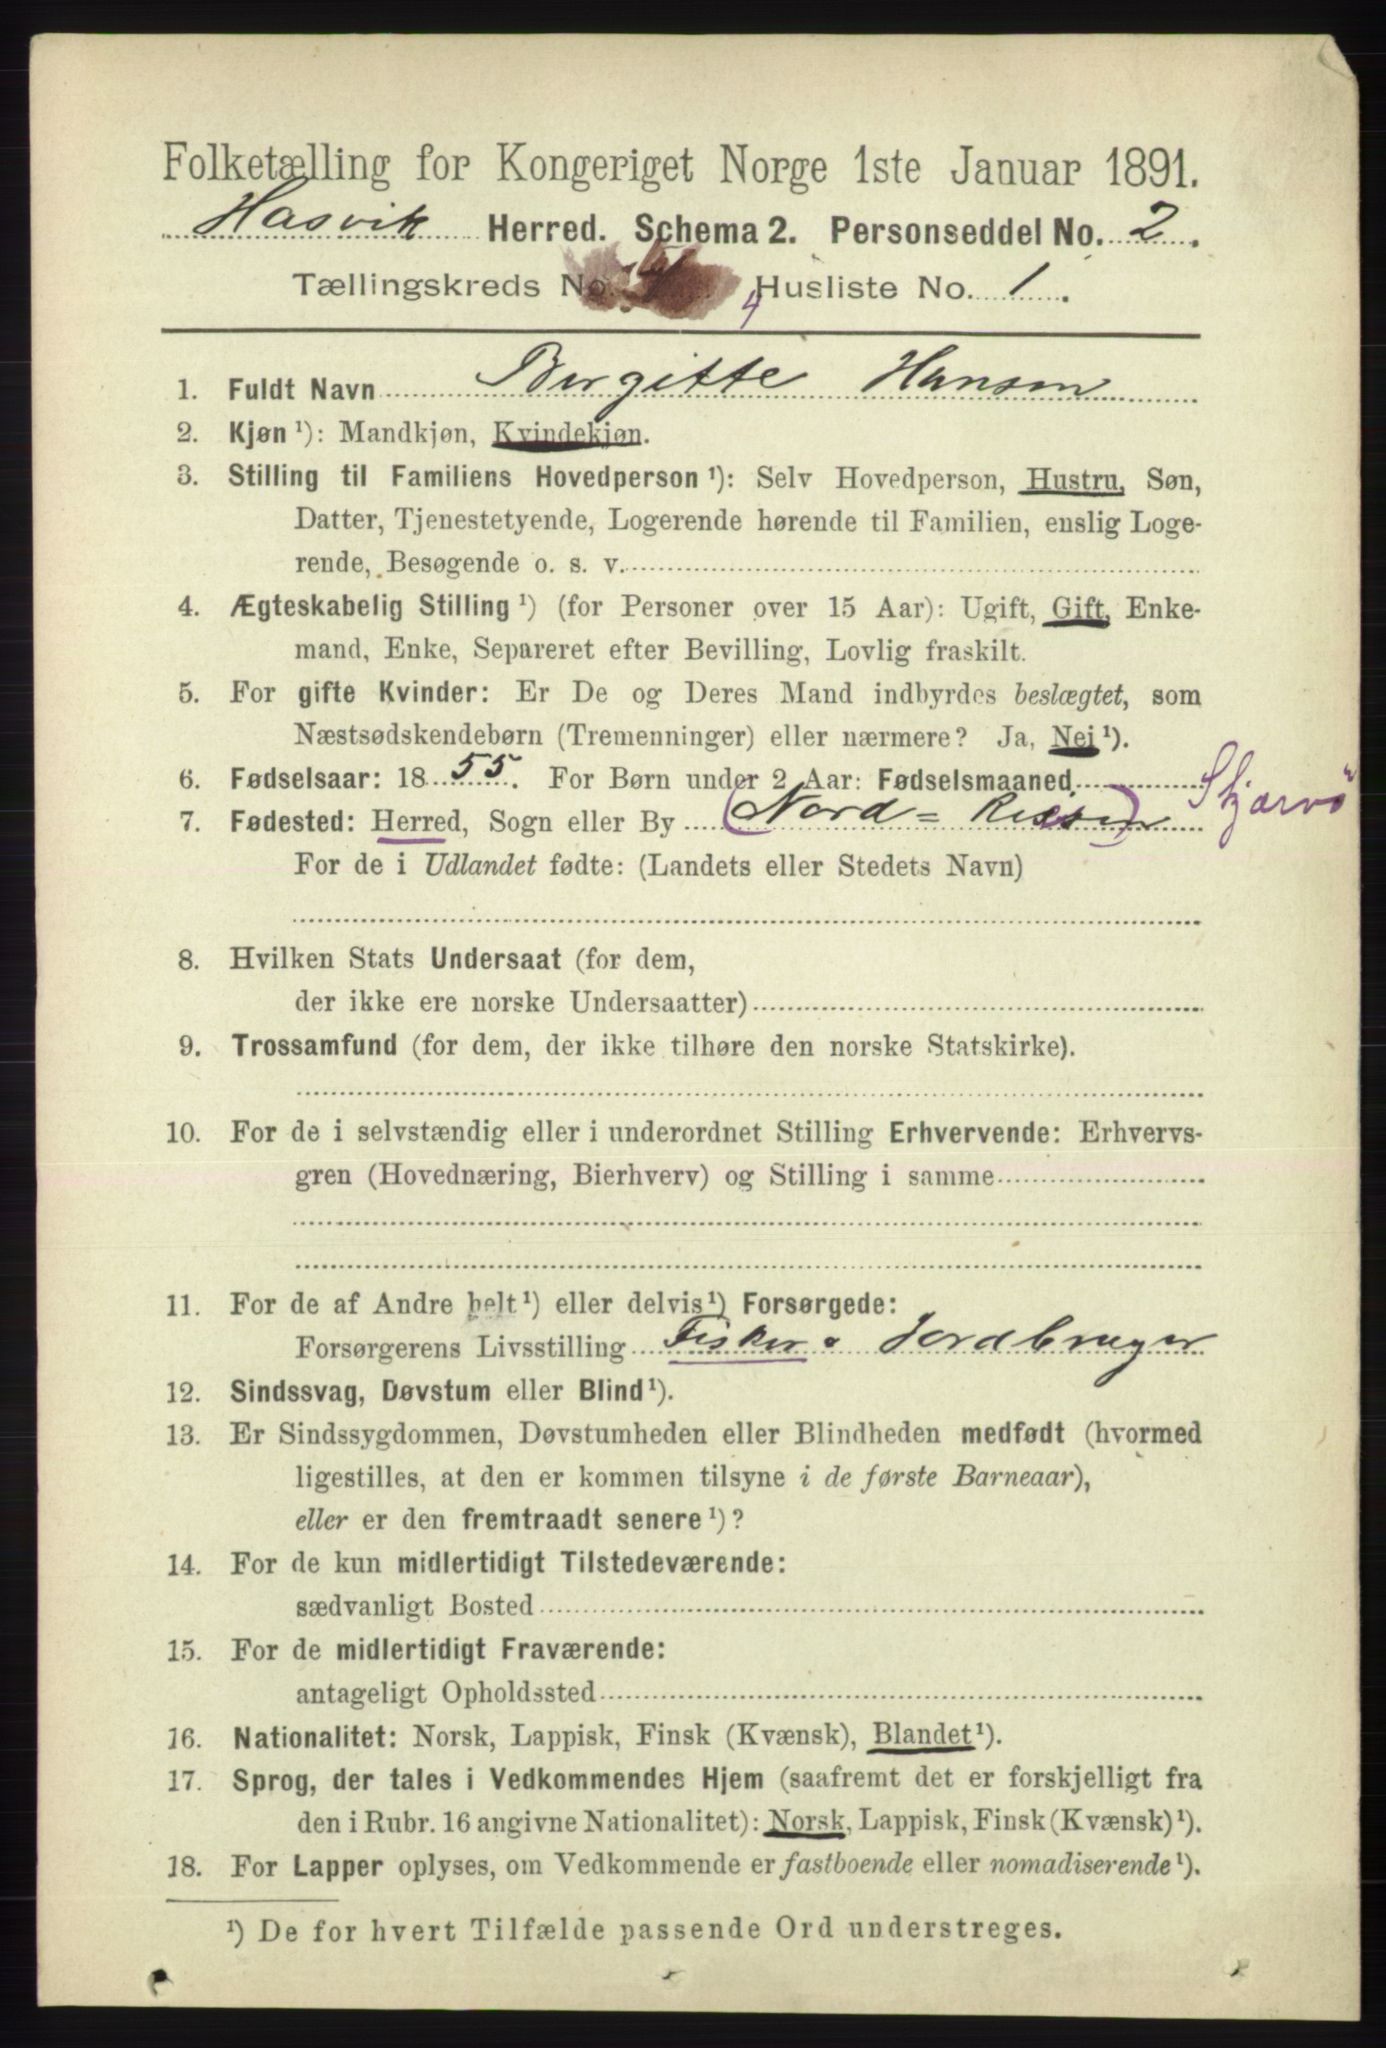 Folketælling for Kongeriget Norge 1ste Januar 1891.
Hasvik Herred. Schema 2. Personseddel No. 2.
Tællingskreds No. 4 Husliste No. 1.
4
1. Fuldt Navn Birgitte Hansen
2. Kjøn ¹): Mandkjøn, Kvindekjøn.
3. Stilling til Familiens Hovedperson ¹): Selv Hovedperson, Hustru, Søn,
Datter, Tjenestetyende, Logerende hørende til Familien, enslig Loge-
rende, Besøgende o. s. v.
4. Ægteskabelig Stilling ¹) (for Personer over 15 Aar): Ugift, Gift, Enke-
mand, Enke, Separeret efter Bevilling, Lovlig fraskilt.
5. For gifte Kvinder: Er De og Deres Mand indbyrdes beslægtet, som
Næstsødskendebørn (Tremenninger) eller nærmere? Ja, Nei ¹).
6. Fødselsaar: 1855. For Børn under 2 Aar: Fødselsmaaned
7. Fødested: Herred, Sogn eller By (Nord=Reisen) Skjærvö
For de i Udlandet fødte: (Landets eller Stedets Navn)
8. Hvilken Stats Undersaat (for dem,
der ikke ere norske Undersaatter)
9. Trossamfund (for dem, der ikke tilhøre den norske Statskirke).
10. For de i selvstændig eller i underordnet Stilling Erhvervende: Erhvervs-
gren (Hovednæring, Bierhverv) og Stilling i samme
11. For de af Andre helt ¹) eller delvis ¹) Forsørgede:
Forsørgerens Livsstilling Fisker & Jordbruger
12. Sindssvag, Døvstum eller Blind ¹).
13. Er Sindssygdommen, Døvstumheden eller Blindheden medfødt (hvormed
ligestilles, at den er kommen tilsyne i de første Barneaar),
eller er den fremtraadt senere ¹)?
14. For de kun midlertidigt Tilstedeværende:
sædvanligt Bosted
15. For de midlertidigt Fraværende:
antageligt Opholdssted
16. Nationalitet: Norsk, Lappisk, Finsk (Kvænsk), Blandet ¹).
17. Sprog, der tales i Vedkommendes Hjem (saafremt det er forskjelligt fra
den i Rubr. 16 angivne Nationalitet): Norsk, Lappisk, Finsk (Kvænsk) ¹).
18. For Lapper oplyses, om Vedkommende er fastboende eller nomadiserende ¹).
¹) De for hvert Tilfælde passende Ord understreges.